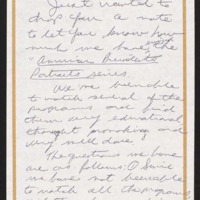 Just wanted to
drop you a note
to let you know how
much we have the
"American Presidents
Portraits" series.
We've been able
to watch several of the
programs and find
them very educational
thought provoking and
very well done.
The questions we have
are as follows: 1) Since
we have not been able
to watch all the programs